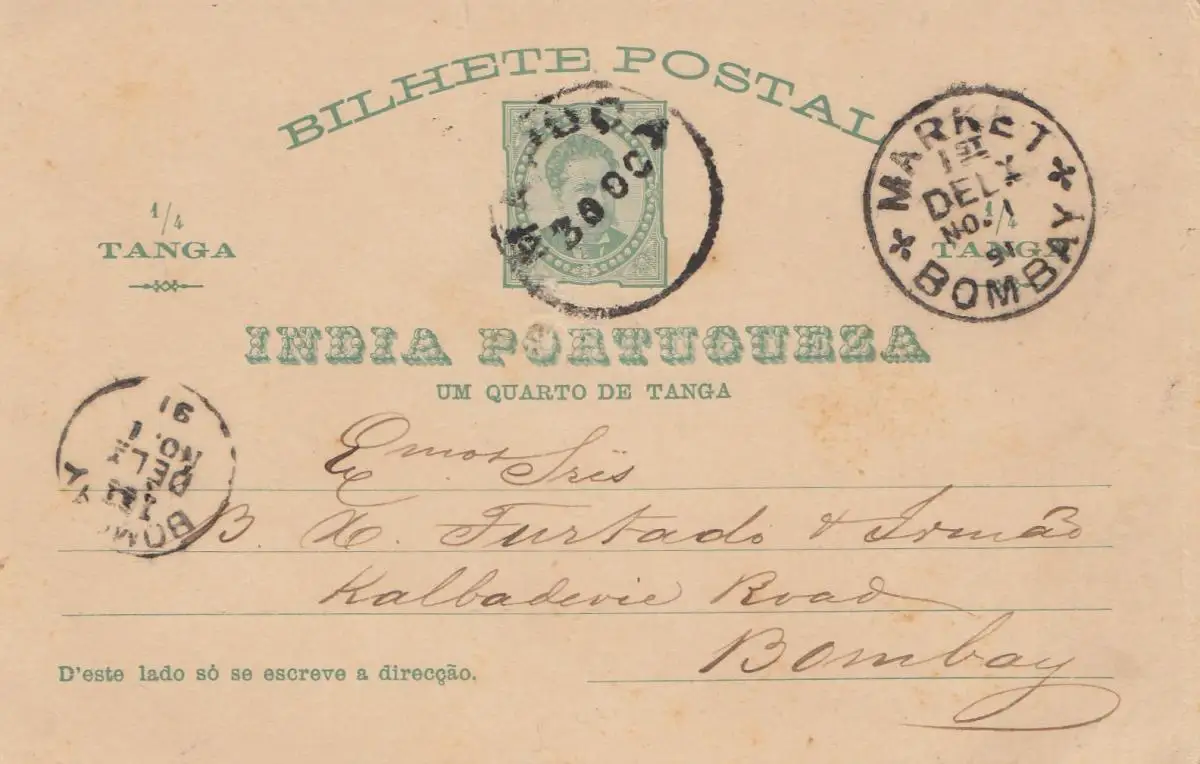 BILHETE POSTAL
1/4
TANGA
1/4
TANGA
MAPUÇA
30 OC
MARKET
1ST
DELY
NO. 1
91
BOMBAY
INDIA PORTUGUEZA
UM QUARTO DE TANGA
91
NO. 1
BOM Y
Emos Srẽs
B. X. Furtado & Irmão
Kalbadevie Road
Bombay
D'este lado só se escreve a direcção.